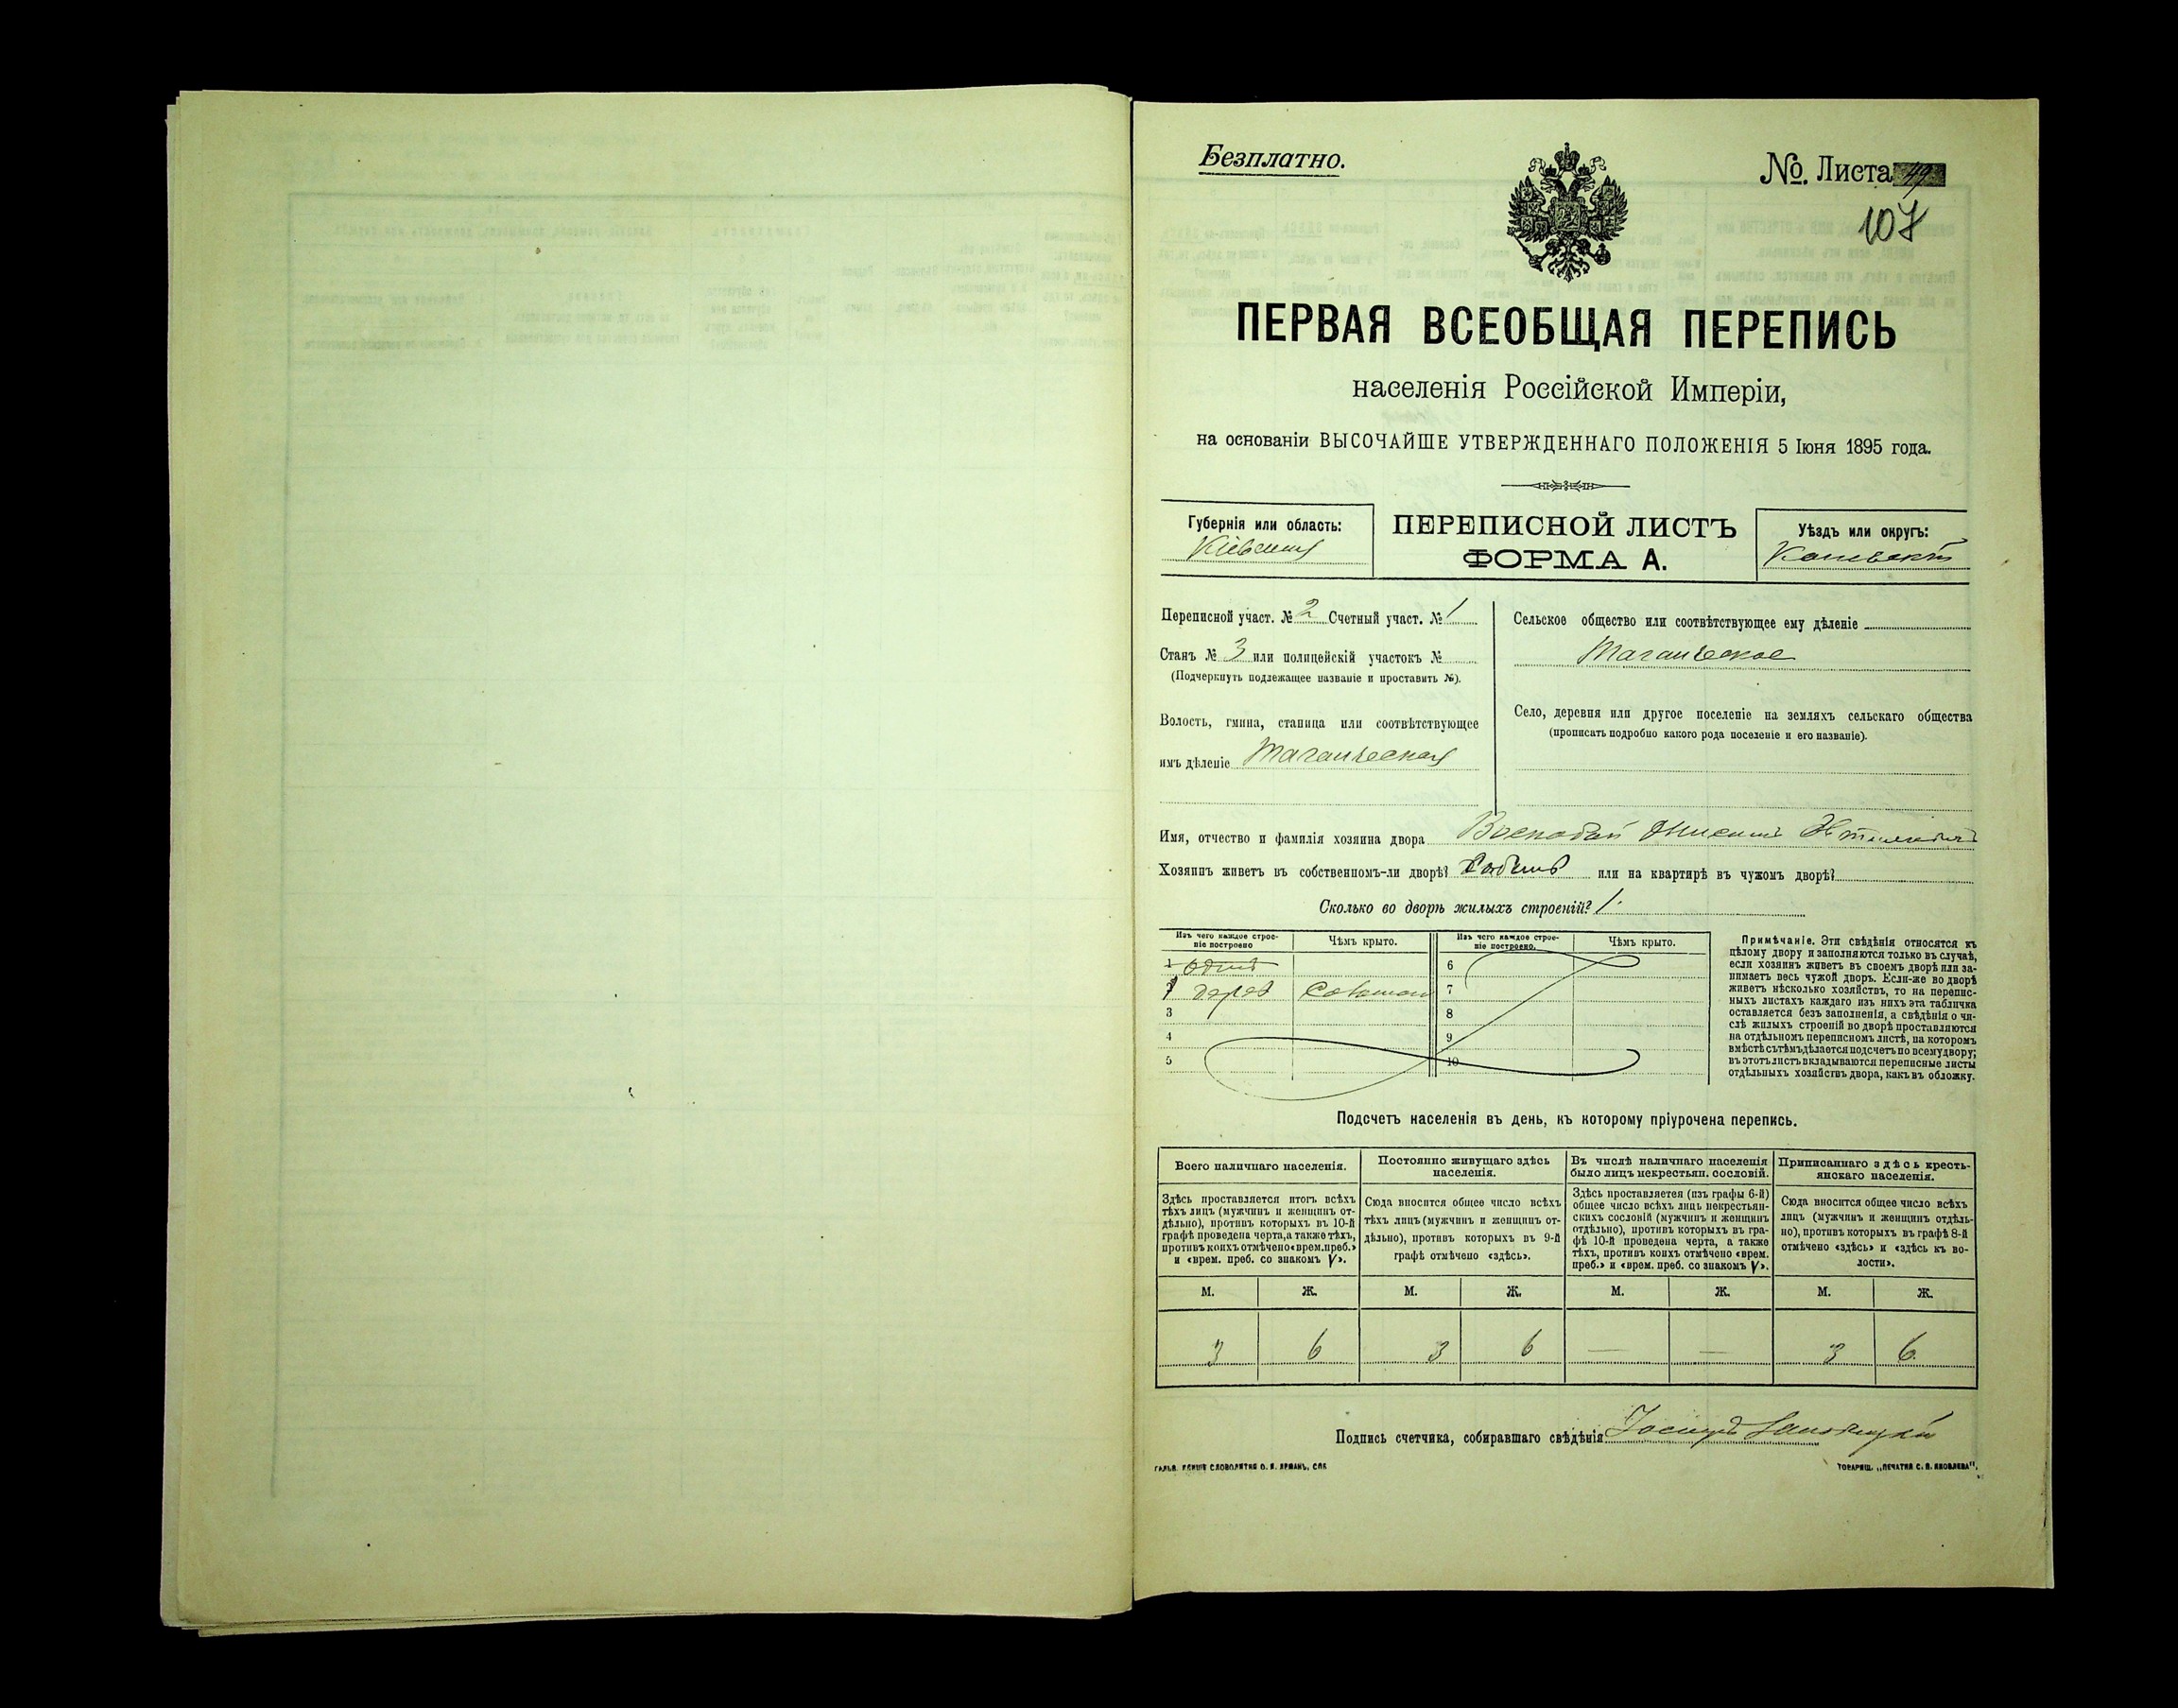 Безплатно.
№. Листа 49
107
ПЕРВАЯ ВСЕОБЩАЯ ПЕРЕПИСЬ
населенія Россійской Имперіи,
на основаніи ВЫСОЧАЙШЕ УТВЕРЖДЕННАГО ПОЛОЖЕНІЯ 5 Іюня 1895 года.
Губернія или область:
Кіевская
ПЕРЕПИСНОЙ ЛИСТЪ
ФОРМА А.
Уѣздъ или округъ:
Каневскій
Переписной участ. № 2 Счетный участ. № 1
Станъ № 3 или полицейскій участокъ №
(Подчеркнуть подлежащее названіе и проставить №).
Волость, гмина, станица или соотвѣтствующее
имъ дѣленіе Таганческая
Сельское общество или соотвѣтствующее ему дѣленіе
Таганческое
Село, деревня или другое поселеніе на земляхъ сельскаго общества
(прописать подробно какого рода поселеніе и его названіе).
Имя, отчество и фамилія хозяина двора
Хозяинъ живетъ въ собственномъ-ли дворѣ? или на квартирѣ въ чужомъ дворѣ?
Сколько во дворѣ жилыхъ строеній? 1.
Изъ чего каждое строе-
ніе построено
Чѣмъ крыто.
Изъ чего каждое строе-
ніе построено.
Чѣмъ крыто.
1
6
дерев Сололюю
7
3
8
4
9
5
10
Примѣчаніе. Эти свѣдѣнія относятся къ
цѣлому двору и заполняются только въ случаѣ,
если хозяинъ живетъ въ своемъ дворѣ или за-
нимаетъ весь чужой дворъ. Если-же во дворѣ
живетъ нѣсколько хозяйствъ, то на перепис-
ныхъ листахъ каждаго изъ нихъ эта табличка
оставляется безъ заполненія, а свѣдѣнія о чи-
слѣ жилыхъ строеній во дворѣ проставляются
на отдѣльномъ переписномъ листѣ, на которомъ
вмѣстѣ съ тѣмъ дѣлается подсчетъ по всему двору;
въ этотъ листъ вкладываются переписные листы
отдѣльныхъ хозяйствъ двора, какъ въ обложку.
Подсчетъ населенія въ день, къ которому пріурочена перепись.
Всего наличнаго населенія.
Здѣсь проставляется итогъ всѣхъ
тѣхъ лицъ (мужчинъ и женщинъ от-
дѣльно), противъ которыхъ въ 10-й
графѣ проведена черта, а также тѣхъ,
противъ коихъ отмѣчено «врем. преб.»
и «врем. преб. со знакомъ V».
Постоянно живущаго здѣсь
населенія.
Сюда вносится общее число всѣхъ
тѣхъ лицъ (мужчинъ и женщинъ от-
дѣльно), противъ которыхъ въ 9-й
графѣ отмѣчено «здѣсь».
Въ числѣ наличнаго населенія
было лицъ некрестьян. сословій.
Здѣсь проставляется (изъ графы 6-й)
общее число всѣхъ лицъ некрестьян-
скихъ сословій (мужчинъ и женщинъ
отдѣльно), противъ которыхъ въ гра-
фѣ 10-й проведена черта, а также
тѣхъ, противъ коихъ отмѣчено «врем.
преб.» и «врем. преб. со знакомъ V».
Приписаннаго здѣсь кресть-
янскаго населенія.
Сюда вносится общее число всѣхъ
лицъ (мужчинъ и женщинъ отдѣль-
но), противъ которыхъ въ графѣ 8-й
отмѣчено «здѣсь» и «здѣсь къ во-
лости».
М. Ж. М. Ж. М. Ж. М. Ж.
3 6 3 6 — — 3 6
Подпись счетчика, собиравшаго свѣдѣнія
ТОВАРИЩ. „ПЕЧАТНЯ С. П. ЯКОВЛЕВА".